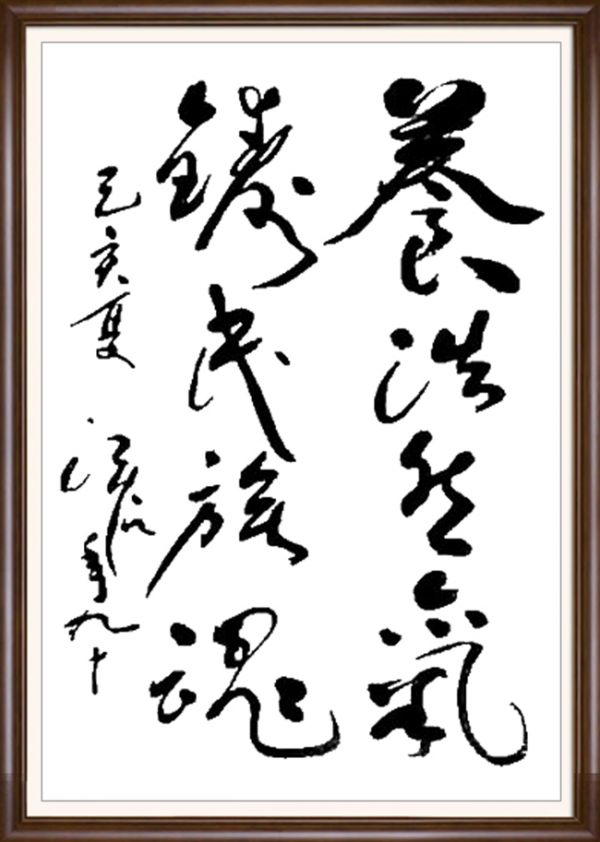 養浩然氣
鑄民族魂
己亥夏 年九十